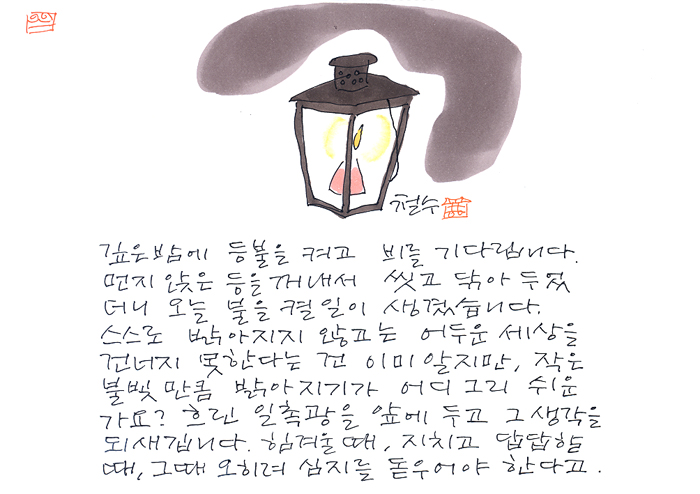 철수
깊은밤에 등불을 켜고 비를 기다립니다.
먼지 앉은 등을 꺼내서 씻고 닦아 두었
더니 오늘 불을 켤 일이 생겼습니다.
스스로 밝아지지 않고는 어두운 세상을
건너지 못한다는 건 이미 알지만, 작은
불빛 만큼 밝아지기가 어디 그리 쉬운
가요? 흐린 일촉광을 앞에 두고 그 생각을
되새깁니다. 힘겨울 때, 지치고 답답할
때, 그때 오히려 심지를 돋우어야 한다고.